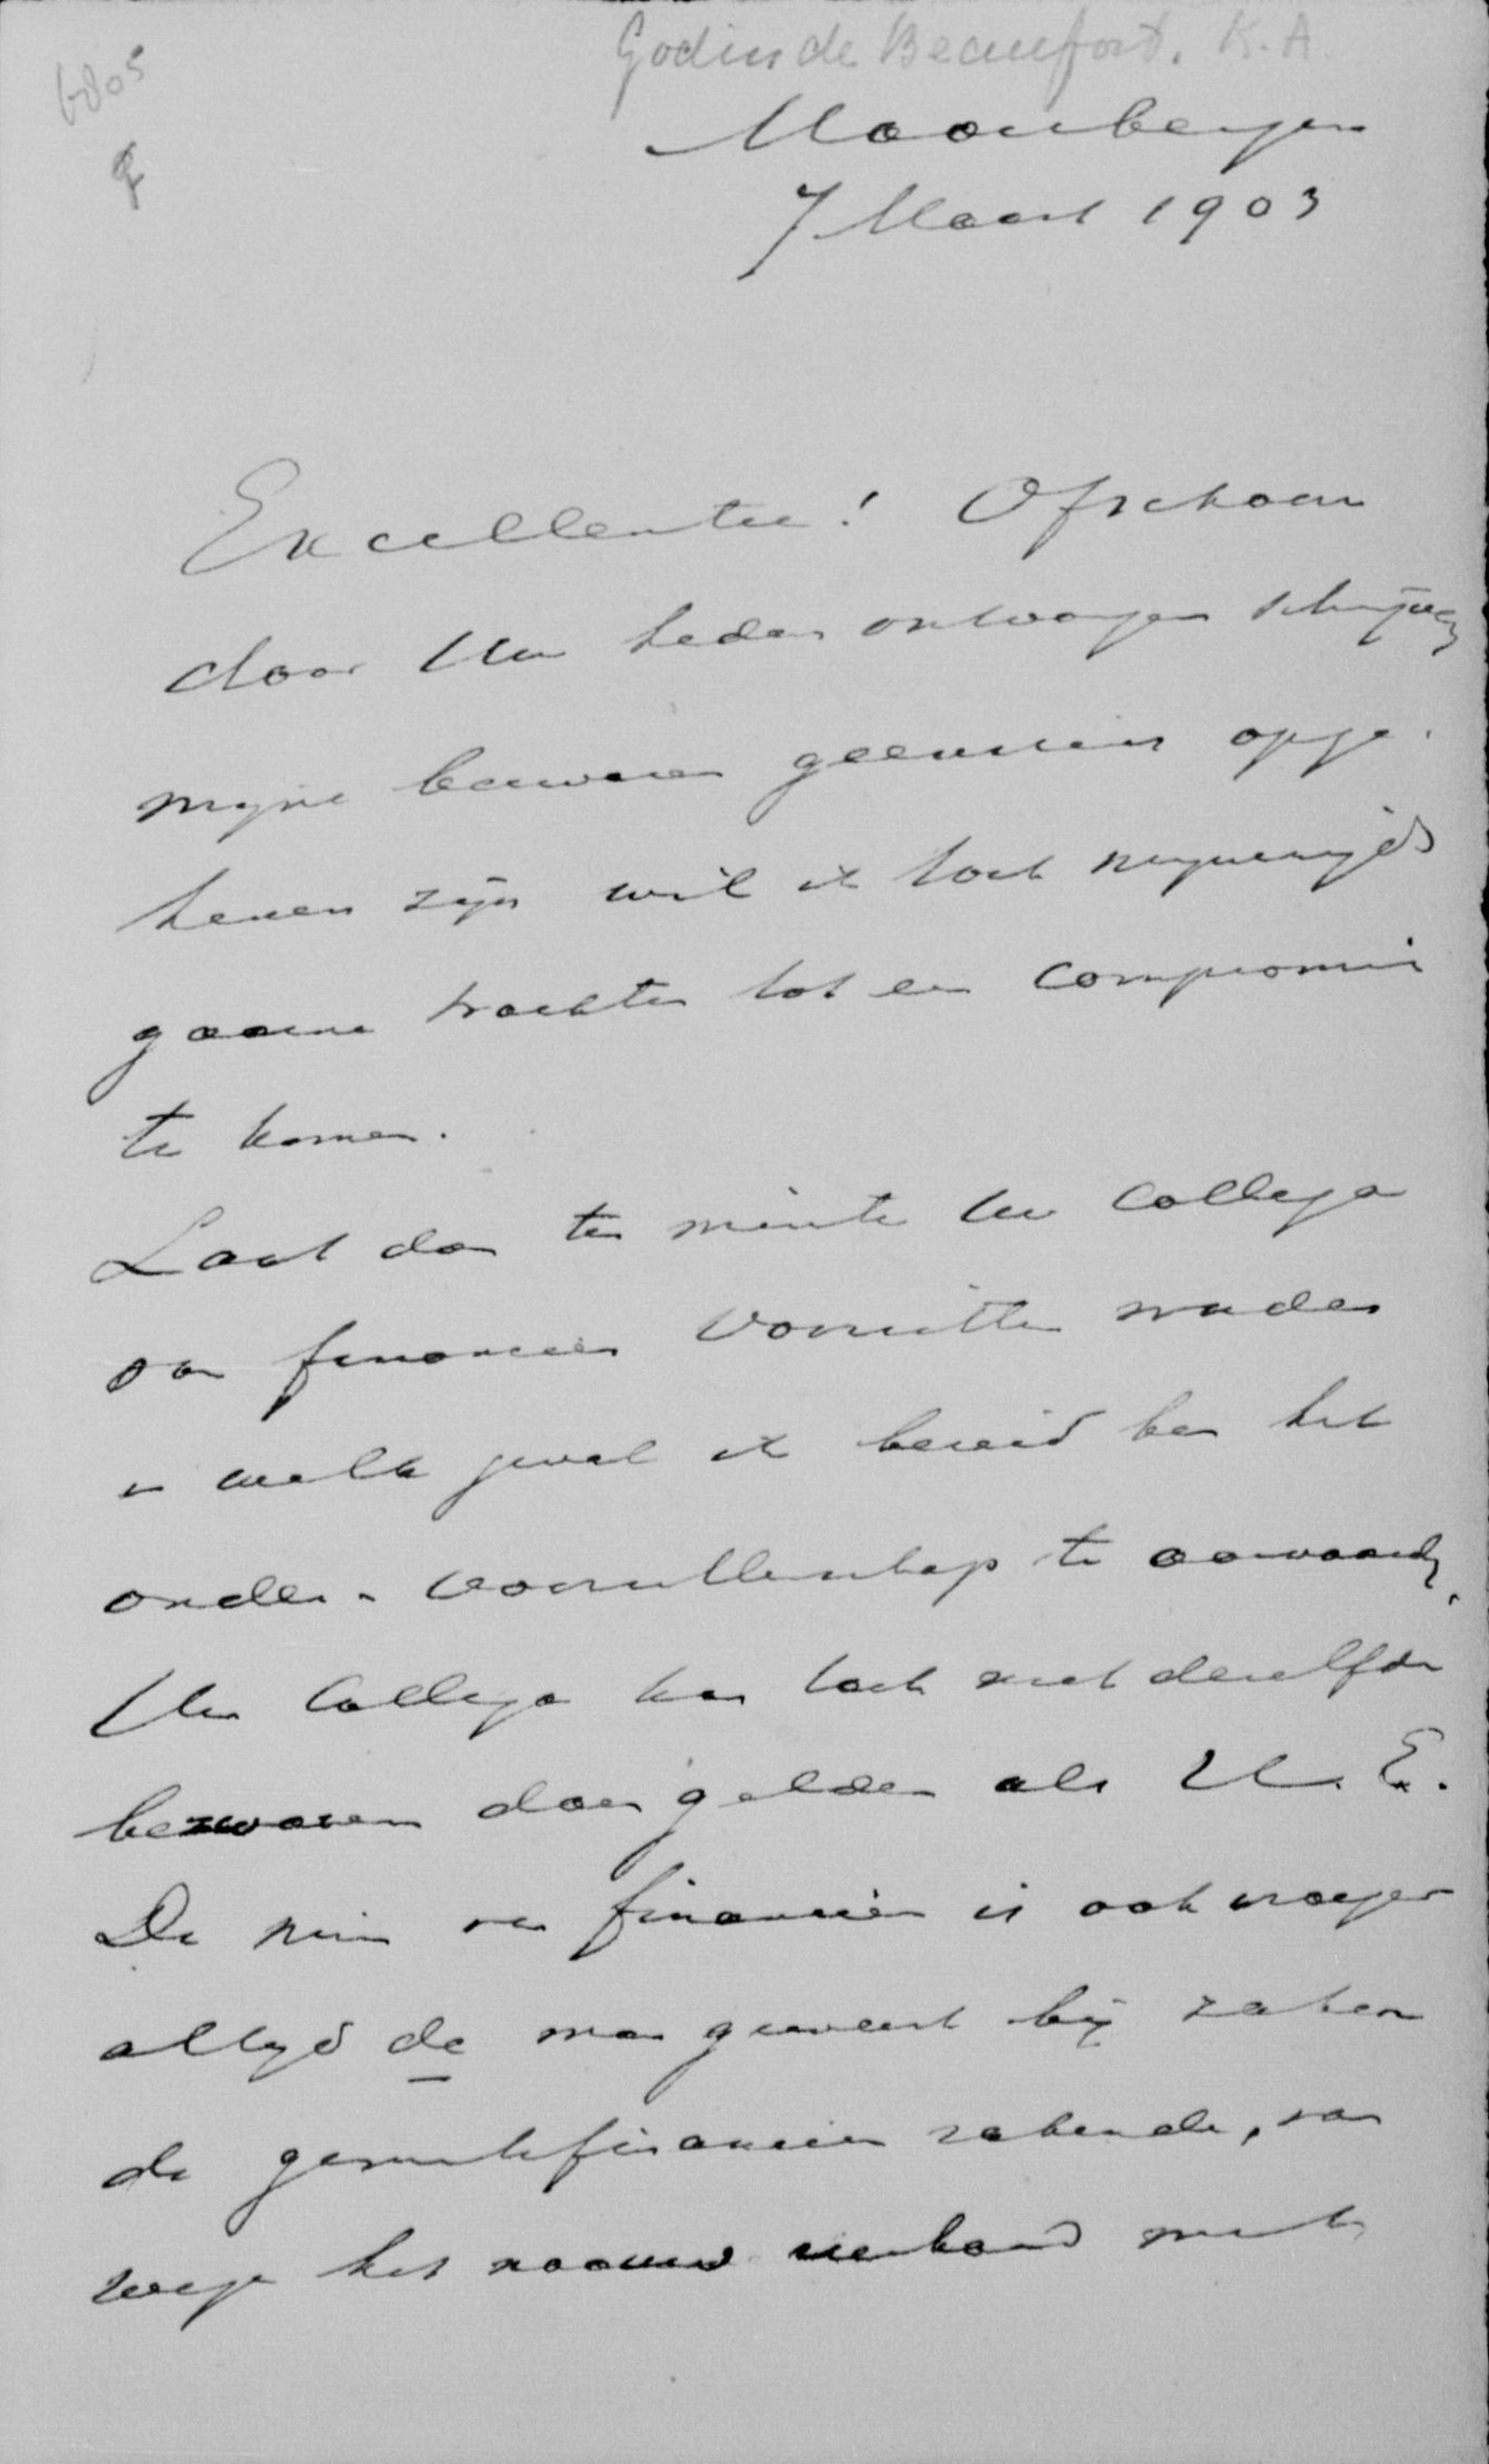 6805
Godin de Beaufort. K. A
Maarsbergen
7 Maart 1903
Excellentie! Ofschoon
door Uw heden ontvangen schrijven
mijne bezwaren geenszins opge-
heven zijn wil ik toch mijnerzijds
gaarne trachten tot een compromis
te komen.
Laat dan ten minste Uw Collega
van financien Voorzitter worden
in welk geval ik bereid ben het
onder-voorzitterschap te aanvaarden.
Uw Collega kan toch niet dezelfde
bezwaren doen gelden als U. E.
De min van financiën is ook vroeger
altijd de man geweest bij zaken
de gemeentefinancien rakende, van
wege het naauw verband met